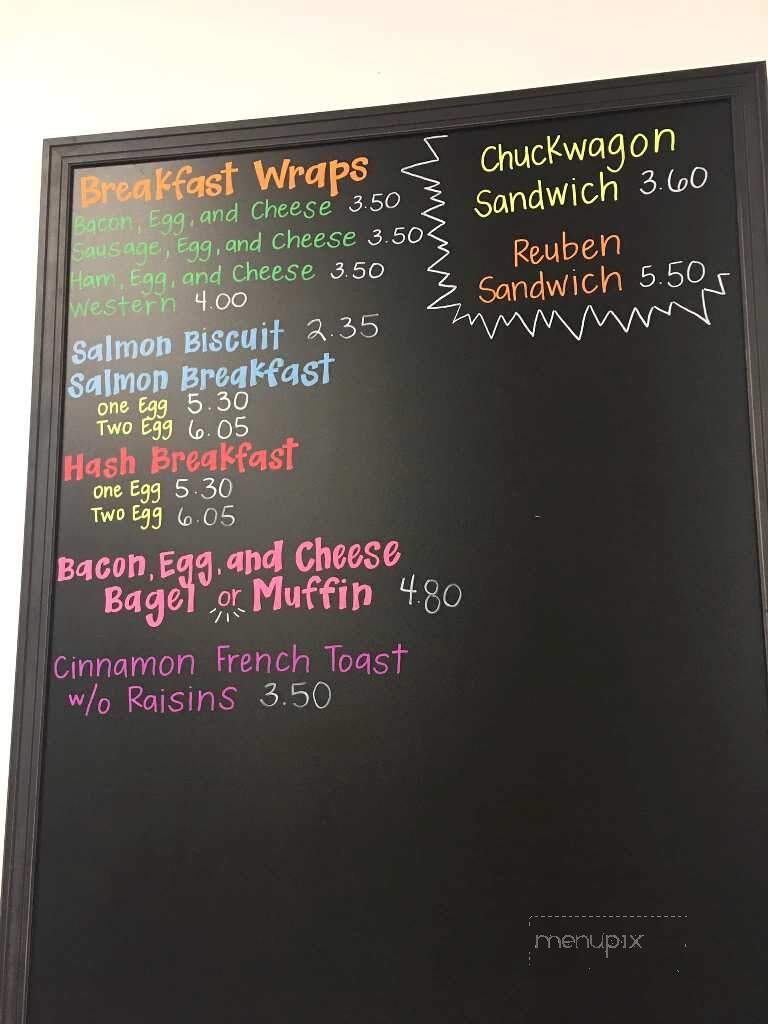 Breakfast Wraps
Bacon, Egg, and Cheese 3.50
Sausage, Egg, and Cheese 3.50
Ham, Egg, and Cheese 3.50
Western 4.00
Salmon Biscuit 2.35
Salmon Breakfast
one Egg 5.30
Two Egg 6.05
Hash Breakfast
one Egg 5.30
Two Egg 6.05
Bacon, Egg, and Cheese
Bagel or Muffin 4.80
Cinnamon French Toast
w/o Raisins 3.50
Chuckwagon
Sandwich 3.60
Reuben
Sandwich 5.50
menupix